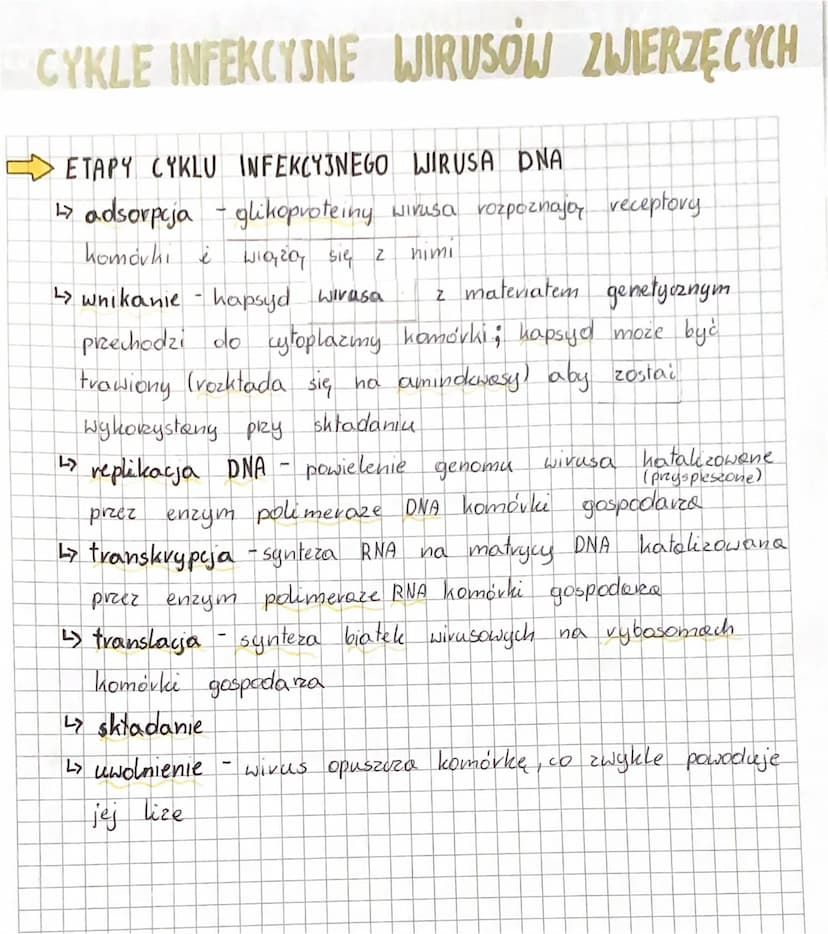 CYKLE INFEKCYJNE WIRUSÓW ZWIERZĘCYCH
ETAPY CYKLU INFEKCYJNEGO WIRUSA DNA
↳ adsorpcja - glikoproteiny wirusa rozpoznają receptory
komórki i wiążą się z nimi
↳ wnikanie - kapsyd wirusa z materiałem genetycznym
przechodzi do cytoplazmy komórki; kapsyd może być
trawiony (rozkłada się na aminokwasy) aby zostać
wykorzystany przy składaniu
↳ replikacja DNA - powielenie genomu wirusa katalizowane
(przyspieszone)
przez enzym polimerazę DNA komórki gospodarza
↳ transkrypcja - synteza RNA na matrycy DNA katalizowana
przez enzym polimerazę RNA komórki gospodarza
↳ translacja - synteza białek wirusowych na rybosomach
komórki gospodarza
↳ składanie
↳ uwolnienie - wirus opuszcza komórkę, co zwykle powoduje
jej lizę